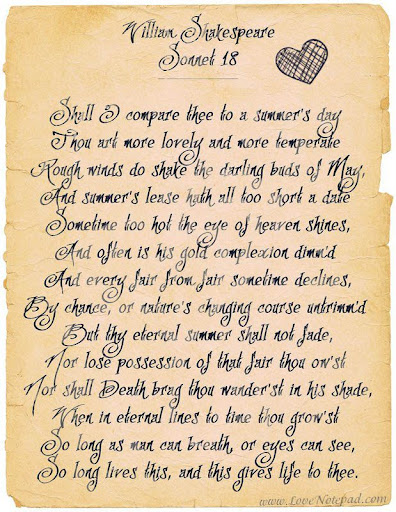 William Shakespeare
Sonnet 18
Shall I compare thee to a summer's day
Thou art more lovely and more temperate
Rough winds do shake the darling buds of May,
And summer's lease hath all too short a date
Sometime too hot the eye of heaven shines,
And often is his gold complexion dimm'd
And every fair from fair sometime declines,
By chance, or nature's changing course untrimm'd
But thy eternal summer shall not fade,
Nor lose possession of that fair thou ow'st
Nor shall Death brag thou wander'st in his shade,
When in eternal lines to time thou grow'st
So long as man can breath, or eyes can see,
So long lives this, and this gives life to thee.
www.LoveNotepad.com